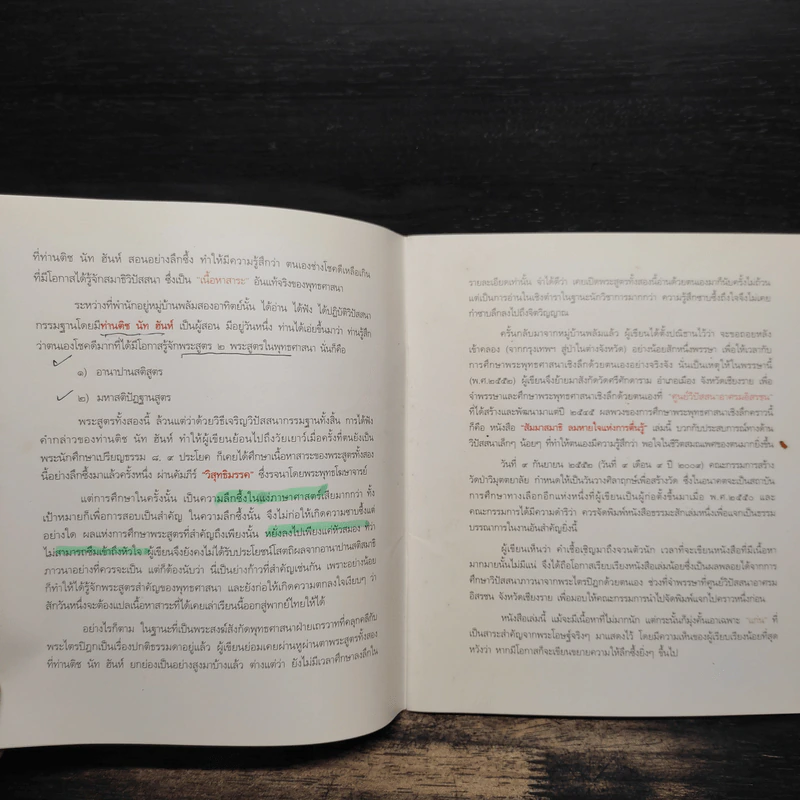 ที่ท่านติช นัท ฮันห์ สอนอย่างลึกซึ้ง ทำให้มีความรู้สึกว่า ตนเองช่างโชคดีเหลือเกิน
ที่มีโอกาสได้รู้จักสมาธิวิปัสสนา ซึ่งเป็น "เนื้อหาสาระ" อันแท้จริงของพุทธศาสนา
ระหว่างที่พำนักอยู่หมู่บ้านพลัมสองอาทิตย์นั้น ได้อ่าน ได้ฟัง ได้ปฏิบัติวิปัสสนา
กรรมฐานโดยมีท่านติช นัท ฮันห์ เป็นผู้สอน มีอยู่วันหนึ่ง ท่านได้เอ่ยขึ้นมาว่า ท่านรู้สึก
ว่าตนเองโชคดีมากที่ได้มีโอกาสรู้จักพระสูตร ๒ พระสูตรในพุทธศาสนา นั่นก็คือ
๑) อานาปานสติสูตร
๒) มหาสติปัฏฐานสูตร
พระสูตรทั้งสองนี้ ล้วนแต่ว่าด้วยวิธีเจริญวิปัสสนากรรมฐานทั้งสิ้น การได้ฟัง
คำกล่าวของท่านติช นัท ฮันห์ ทำให้ผู้เขียนย้อนไปถึงวัยเยาว์เมื่อครั้งที่ตนยังเป็น
พระนักศึกษาเปรียญธรรม ๘, ๙ ประโยค ก็เคยได้ศึกษาเนื้อหาสาระของพระสูตรทั้งสอง
นี้อย่างลึกซึ้งมาแล้วครั้งหนึ่ง ผ่านคัมภีร์ "วิสุทธิมรรค" ซึ่งรจนาโดยพระพุทธโฆษาจารย์
แต่การศึกษาในครั้งนั้น เป็นความลึกซึ้งในแง่ภาษาศาสตร์เสียมากกว่า ทั้ง
เป้าหมายก็เพื่อการสอบเป็นสำคัญ ในความลึกซึ้งนั้น จึงไม่ก่อให้เกิดความซาบซึ้งแต่
อย่างใด ผลแห่งการศึกษาพระสูตรที่สำคัญถึงเพียงนั้น หยั่งลงไปเพียงแค่หัวสมอง ทว่า
ไม่สามารถซึมเข้าถึงหัวใจ ผู้เขียนจึงยังคงไม่ได้รับประโยชน์โสตถิผลจากอานาปานสติสมาธิ
ภาวนาอย่างที่ควรจะเป็น แต่ก็ต้องนับว่า นี่เป็นย่างก้าวที่สำคัญเช่นกัน เพราะอย่างน้อย
ก็ทำให้ได้รู้จักพระสูตรสำคัญของพุทธศาสนา และยังก่อให้เกิดความตกลงใจเงียบๆ ว่า
สักวันหนึ่งจะต้องแปลเนื้อหาสาระที่ได้เคยเล่าเรียนนี้ออกสู่พากย์ไทยให้ได้
อย่างไรก็ตาม ในฐานะที่เป็นพระสงฆ์สังกัดพุทธศาสนาฝ่ายเถรวาทที่คลุกคลีกับ
พระไตรปิฎกเป็นเรื่องปกติธรรมดาอยู่แล้ว ผู้เขียนย่อมเคยผ่านหูผ่านตาพระสูตรทั้งสอง
ที่ท่านติช นัท ฮันห์ ยกย่องเป็นอย่างสูงมาบ้างแล้ว ต่างแต่ว่า ยังไม่มีเวลาศึกษาลงลึกใน
รายละเอียดเท่านั้น จำได้ดีว่า เคยเปิดพระสูตรทั้งสองนี้อ่านด้วยตนเองมาก็นับครั้งไม่ถ้วน
แต่เป็นการอ่านในเชิงตำราในฐานะนักวิชาการมากกว่า ความรู้สึกซาบซึ้งถึงใจจึงไม่เคย
กำซาบลึกลงไปถึงจิตวิญญาณ
ครั้นกลับมาจากหมู่บ้านพลัมแล้ว ผู้เขียนได้ตั้งปณิธานไว้ว่า จะขอถอยหลัง
เข้าคลอง (จากกรุงเทพฯ สู่ป่าในต่างจังหวัด) อย่างน้อยสักหนึ่งพรรษา เพื่อให้เวลากับ
การศึกษาพระพุทธศาสนาเชิงลึกด้วยตนเองอย่างจริงจัง นั่นเป็นเหตุให้ในพรรษานี้
(พ.ศ.๒๕๕๒) ผู้เขียนจึงย้ายมาสังกัดวัดศรีศักดาราม อำเภอเมือง จังหวัดเชียงราย เพื่อ
จำพรรษาและศึกษาพระพุทธศาสนาเชิงลึกด้วยตนเองที่ "ศูนย์วิปัสสนาอาศรมอิสรชน"
ที่ได้สร้างและพัฒนามาแต่ปี ๒๕๔๕ ผลพวงของการศึกษาพุทธศาสนาเชิงลึกคราวนี้
ก็คือ หนังสือ "สัมมาสมาธิ ลมหายใจแห่งการตื่นรู้" เล่มนี้ บวกกับประสบการณ์ทางด้าน
วิปัสสนาเล็กๆ น้อยๆ ที่ทำให้ตนเองมีความรู้สึกว่า พอใจในชีวิตสมณเพศของตนมากยิ่งขึ้น
วันที่ ๙ กันยายน ๒๕๕๒ (วันที่ ๙ เดือน ๙ ปี ๒๐๐๙) คณะกรรมการสร้าง
วัดป่าวิมุตตยาลัย กำหนดให้เป็นวันวางศิลาฤกษ์เพื่อสร้างวัด ซึ่งในอนาคตจะเป็นสถาบัน
การศึกษาทางเลือกอีกแห่งหนึ่งที่ผู้เขียนเป็นผู้ก่อตั้งขึ้นมาเมื่อ พ.ศ.๒๕๕๐ และ
คณะกรรมการได้มีความดำริว่า ควรจัดพิมพ์หนังสือธรรมะสักเล่มหนึ่งเพื่อแจกเป็นธรรม
บรรณาการในงานอันสำคัญยิ่งนี้
ผู้เขียนเห็นว่า คำเชื้อเชิญมาถึงจวนตัวนัก เวลาที่จะเขียนหนังสือที่มีเนื้อหา
มากมายนั้นไม่มีแน่ จึงได้ถือโอกาสเรียบเรียงหนังสือเล่มน้อยซึ่งเป็นผลพลอยได้จากการ
ศึกษาวิปัสสนาภาวนาจากพระไตรปิฎกด้วยตนเอง ช่วงที่จำพรรษาที่ศูนย์วิปัสสนาอาศรม
อิสรชน จังหวัดเชียงราย เพื่อมอบให้คณะกรรมการนำไปจัดพิมพ์แจกไปคราวหนึ่งก่อน
หนังสือเล่มนี้ แม้จะมีเนื้อหาที่ไม่มากนัก แต่กระนั้นก็มุ่งคั้นเอาเฉพาะ "แก่น" ที่
เป็นสาระสำคัญจากพระโอษฐ์จริงๆ มาแสดงไว้ โดยมีความเห็นของผู้เรียบเรียงน้อยที่สุด
หวังว่า หากมีโอกาสก็จะเขียนขยายความให้ลึกซึ้งยิ่งๆ ขึ้นไป